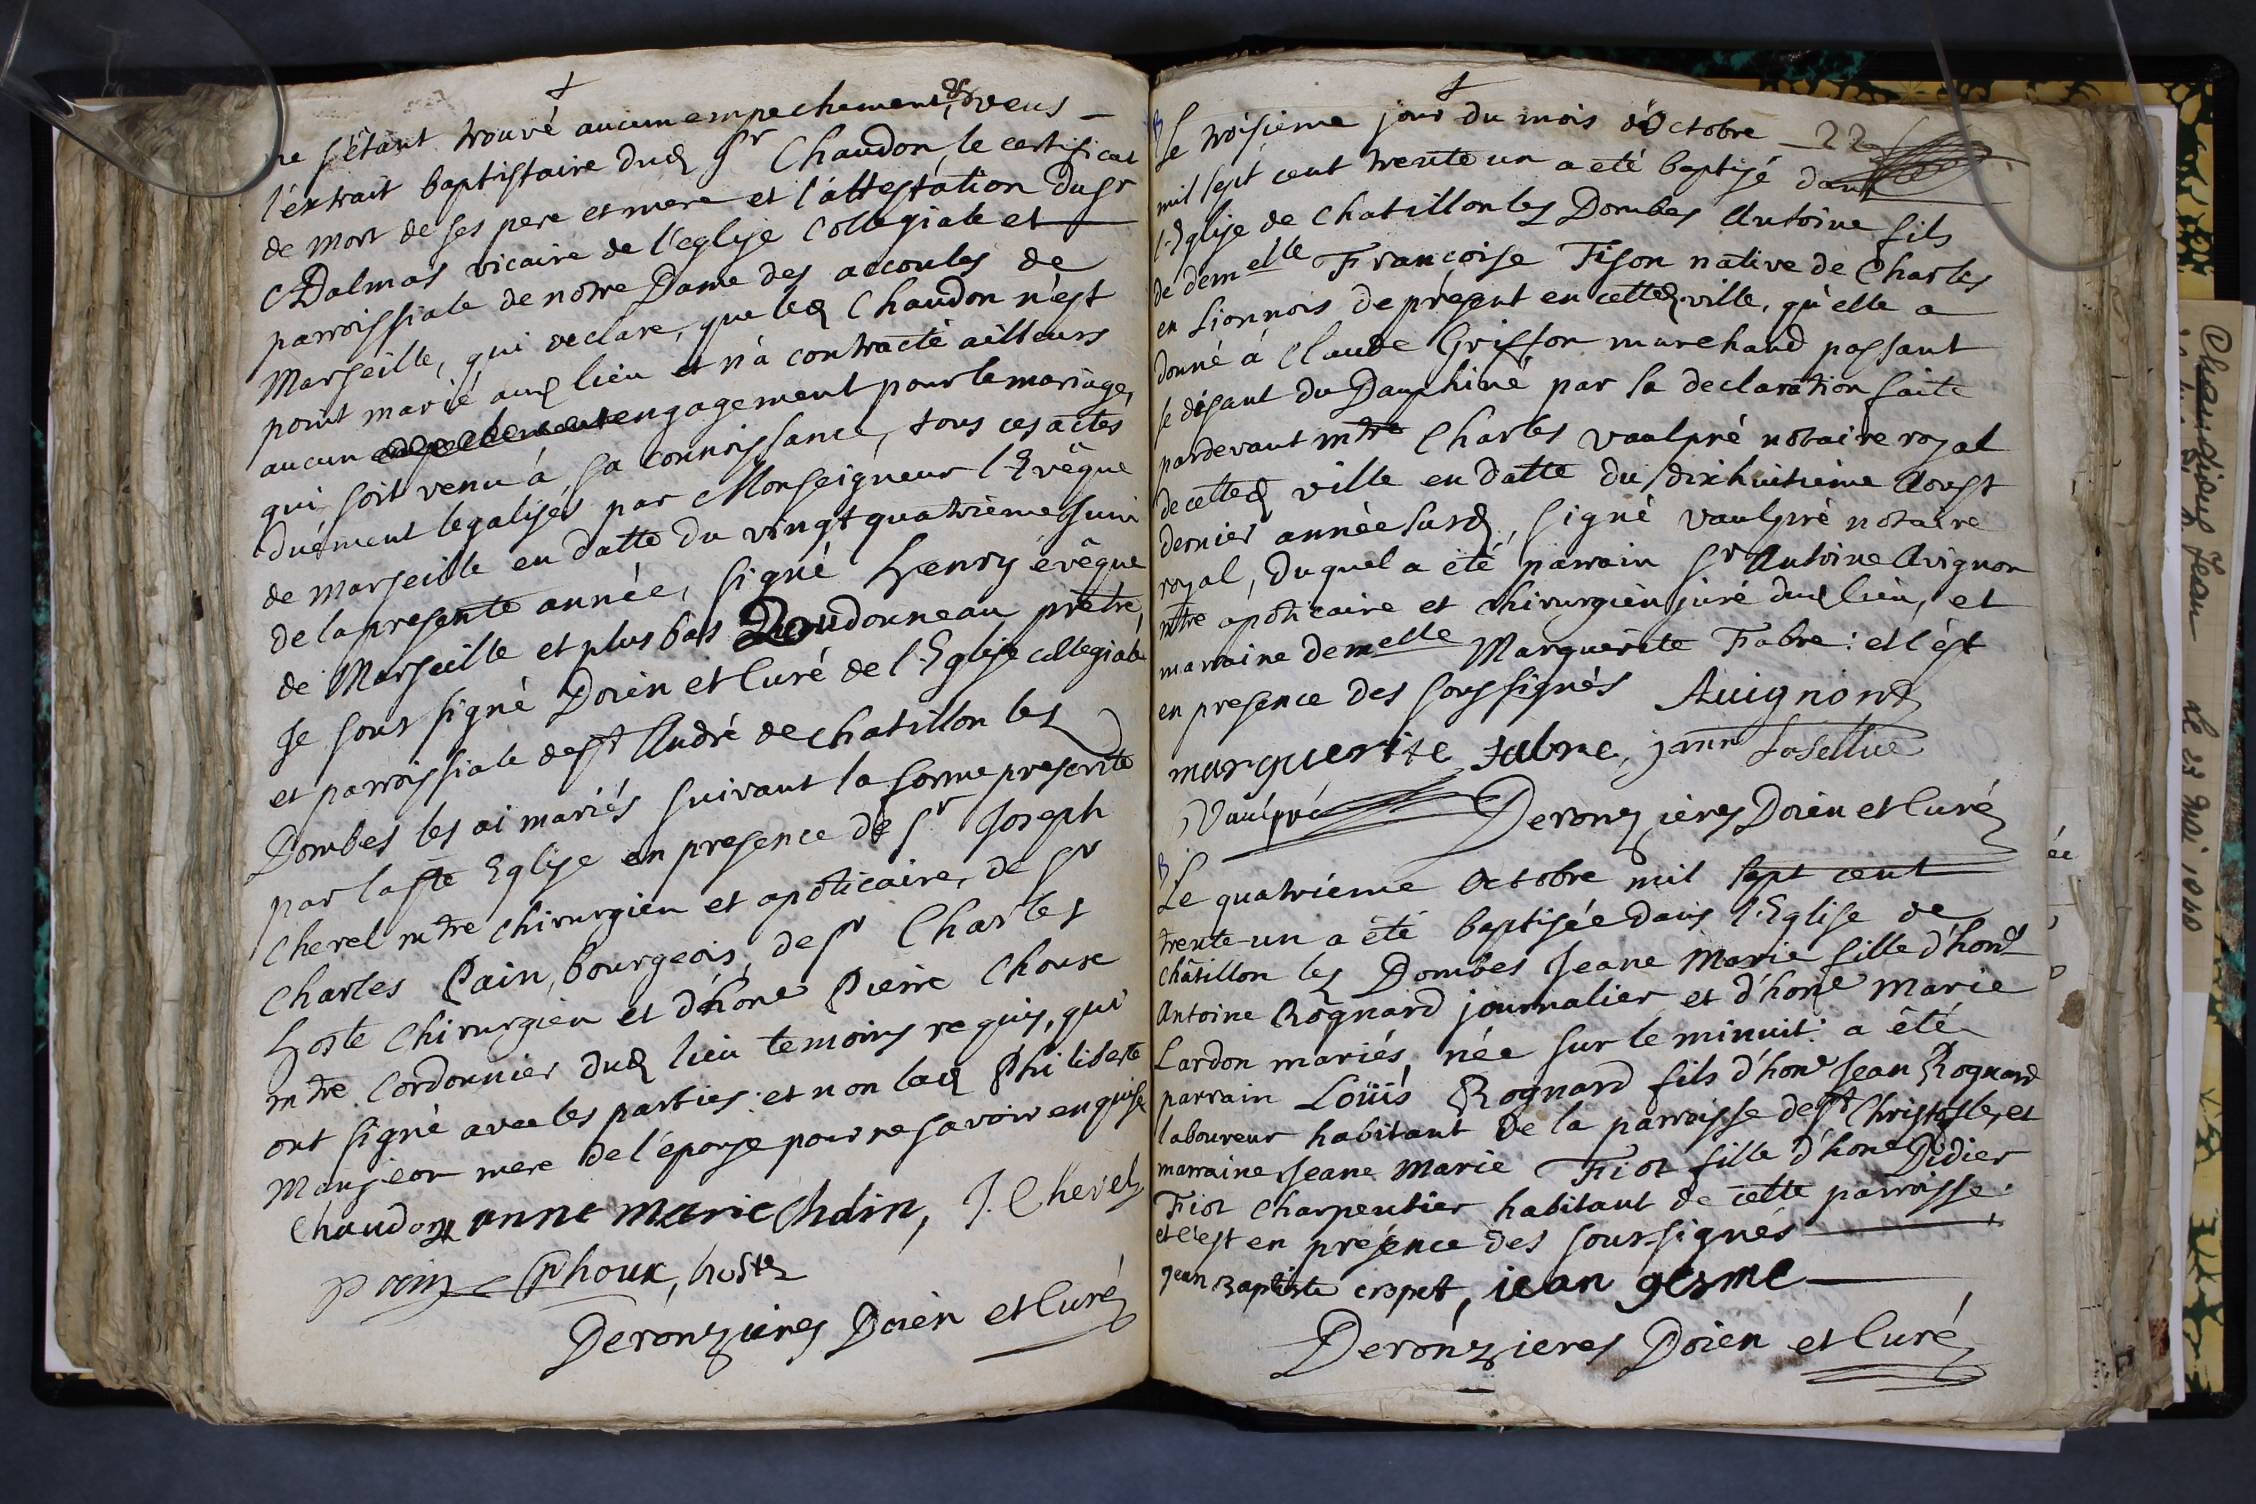 ne s'étant trouvé aucun empechement, & veus
l'extrait baptistaire dud sr Chaudon, le certificat
de mort de ses pere et mere et l'attestation du sr
Dalmas vicaire de l'eglise Collegiale et
parroissiale de notre Dame des accoules de
Marseille, qui declare, que led Chaudon n'est
point marié aud lieu et n'a contracté ailleurs
aucun engagement pour le mariage,
qui soit venu á sa connoissance, tous ces actes
duëment legalisés par Monseigneur l'Evêque
de marseille en datte du vingt quatrième
de la presente année, signé henry évêque
de Marseille et plus bas Doudonneau prêtre,
Je sous signé Doïen et Curé de l'Eglise collegiale
et parroissiale de st André de chatillon les
Dombes les ai mariés suivant la forme prescrite
par la ste Eglise en presence de sr Joseph
Cherel mtre chirurgien et apoticaire, de sr
Charles Pain, bourgeois, de sr Charles
hoste Chirurgien et d'hone Pierre Choux
mtre Cordonnier dud lieu temoins requis, qui
ont signé avec les parties et non lad Philiberte
Manjeon mere de l'épouse pour ne savoir enquise
Chaudon anne marie Chdin, J. Cherel
pain Phoux, hoste
Deronzieres Doïen et Curé
Le troisieme jour du mois d'Octobre 22
mil sept cent trente un a eté baptisé dans
l'Eglise de Chatillon les Dombes Antoine fils
de demelle Françoise Tison native de Charles
en Lionnois de present en cetted ville, qu'elle a
donné á Claude Griffon marchand passant
se disant du Dauphiné par sa declaration faite
pardevant mtre Charles Vaulpré notaire royal
de cetted ville en datte du dixhuitieme Aoust
dernier année susd, signé Vaulpré notaire
royal, duquel a été parrain sr Antoine Avignon
mtre apoticaire et chirurgien juré dud lieu, et
marraine demelle Marguerite Fabre: et c'est
en presence des soussignés Auignon
marguerite fabre, jann
Vaulpré Deronzieres Doïen et Curé
Le quatriéme Octobre mil sept cent
trente-un a été baptisée dans l'Eglise de
châtillon les Dombes Jeane Marie fille d'hone
Antoine Rognard journalier et d'hone Marie
Lardon mariés, née sur le minuit: a été
parrain Loüis Rognard fils d'hone Jean Rognard
laboureur habitant de la parroisse de st Christofle, et
marraine Jeane Marie Fiot fille d'hone Didier
Fiot Charpentier habitant de cette parroisse.
et c'est en présence des sous-signés
jean Baptiste cropet, iean gesme
Deronzieres Doïen et Curé
Jean le 23 mai 1040